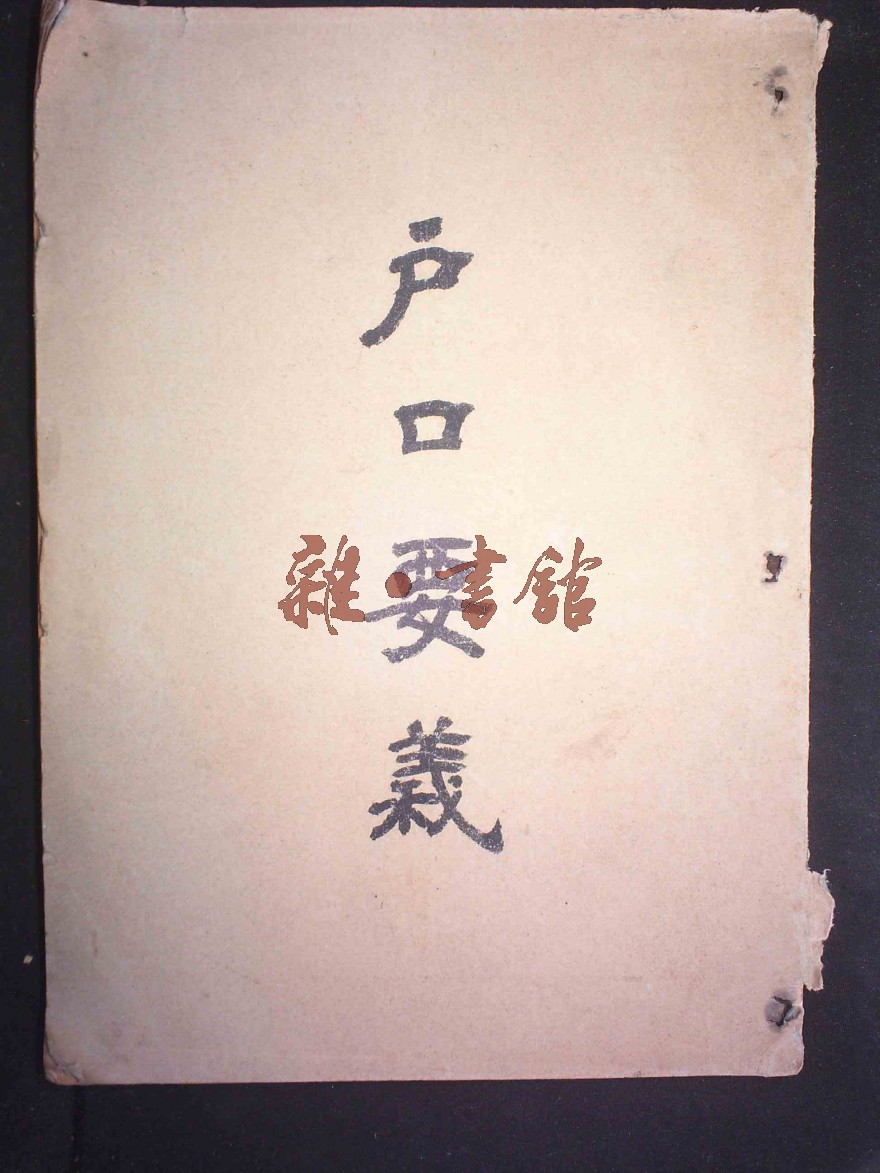 户口要義
雜·書館